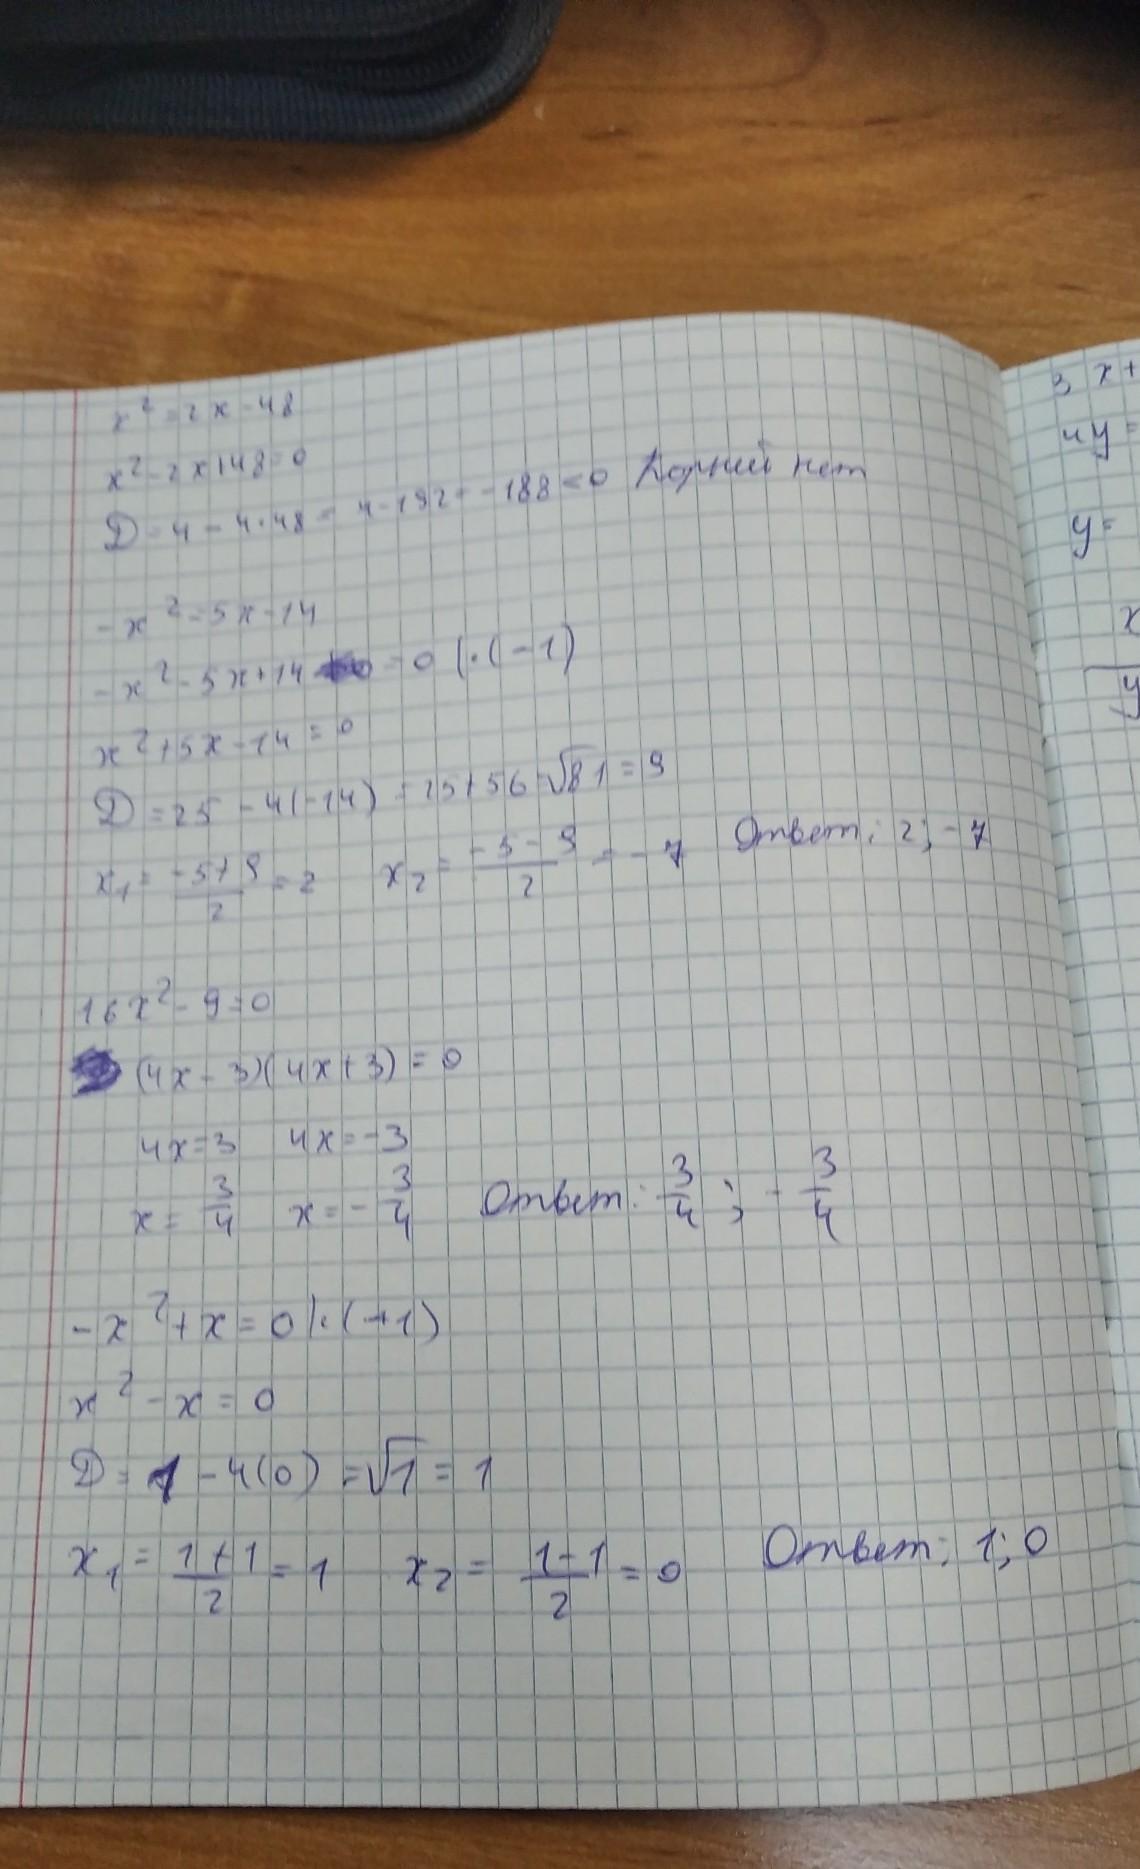 x² = 2x - 48
x² - 2x + 48 = 0
D = 4 - 4·48 = 4 - 192 = -188 < 0 Корний нет
-x² = 5x - 14
-x² - 5x + 14 = 0 |·(-1)
x² + 5x - 14 = 0
D = 25 - 4(-14) = 25 + 56 √81 = 9
x₁ = (-5+9)/2 = 2 x₂ = (-5-9)/2 = -7 Ответ: 2; -7
16x² - 9 = 0
(4x - 3)(4x + 3) = 0
4x = 3 4x = -3
x = 3/4 x = -3/4 Ответ: 3/4 ; -3/4
-x² + x = 0 |·(-1)
x² - x = 0
D = 1 - 4(0) = √1 = 1
x₁ = (1+1)/2 = 1 x₂ = (1-1)/2 = 0 Ответ: 1; 0
3x+
4y=
y=
x
y